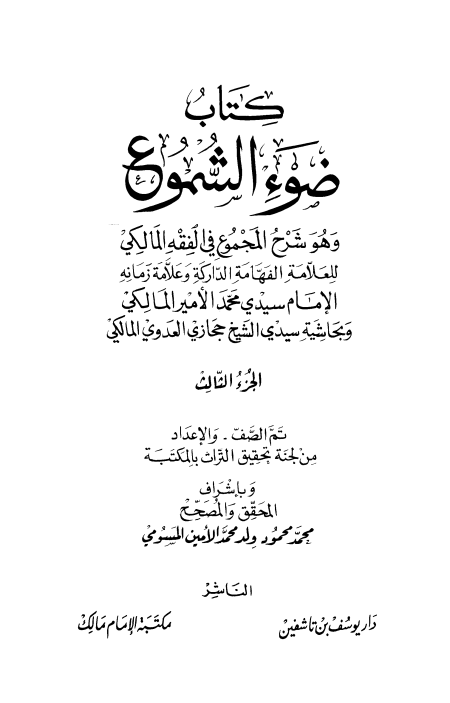 كِتَابُ
ضَوْءِ الشُّمُوعِ
وَهُوَ شَرْحُ المَجْمُوعِ فِي الفِقْهِ المَالِكِيْ
لِلعَلّامَةِ الفَهّامَةِ الدّارِكَةِ وَعَلّامَة زَمَانِهِ
الإمَام سيدي محَمّد الأمير المَالِكِيْ
وَبحَاشِيَة سيدي الشّيْخ حجَازي العَدوي المالكيْ
الجُزءُ الثّالِثْ
تَمَّ الصَّفّ - وَالإعْدَاد
مِنْ لجنَة تحقِيق التّراث بالمكتَبَة
وَبإشْرَاف
المحَقِّق وَالمُصَحِّحْ
محمّد محمُود ولد محمّد الأمين المسُومي
النّاشِرْ
دَار يوسُف بْن تاشفين
مكتبَة الإمَام مَالِكْ